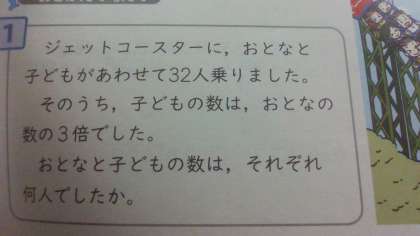 1
ジェットコースターに，おとなと
子どもがあわせて32人乗りました。
そのうち，子どもの数は，おとなの
数の3倍でした。
おとなと子どもの数は，それぞれ
何人でしたか。